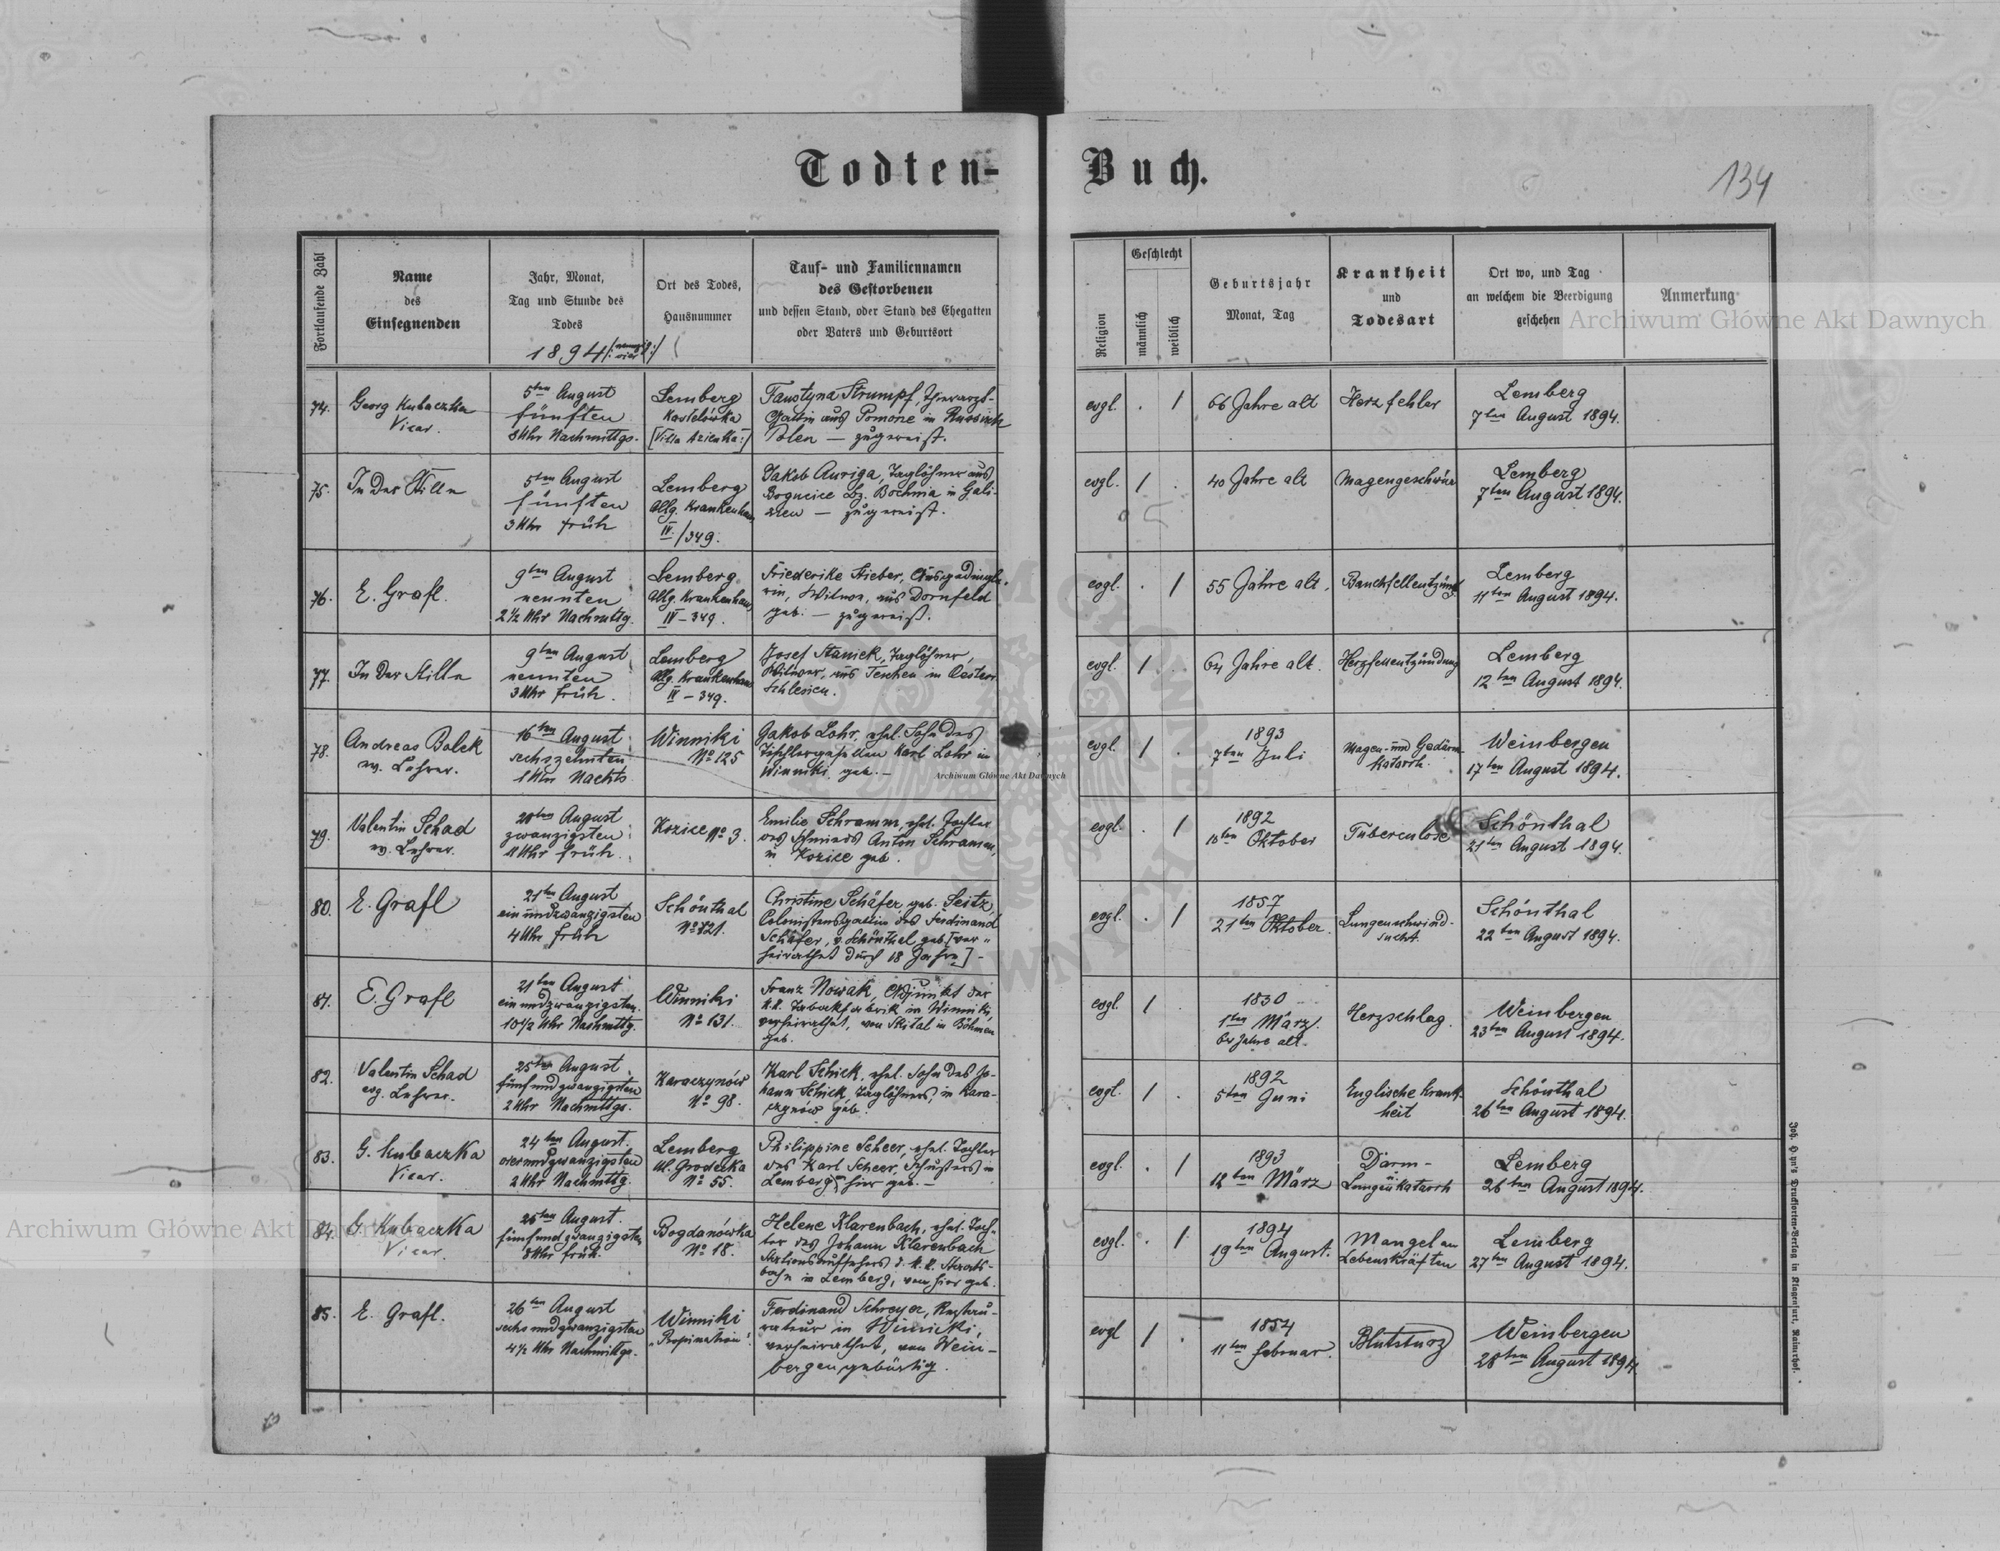 Todten-
Buch.
134
Fortlaufende Zahl
Name
des
Einsegnenden
Jahr, Monat,
Tag und Stunde des
Todes
1894
Ort des Todes,
Hausnummer
Tauf- und Familiennamen
des Gestorbenen
und dessen Stand, oder Stand des Ehegatten
oder Vaters und Geburtsort
Religion
Geschlecht
männlich
weiblich
Geburtsjahr
Monat, Tag
Krankheit
und
Todesart
Ort wo, und Tag
an welchem die Beerdigung
geschehen
Anmerkung
74.
Georg Kubaczka
Vicar.
5ten August
fünften
8 Uhr Nachmittgs.
Lemberg
Kastelówka
Faustyna Strumpf,
Gattin aus Pomorze in Russisch
Polen — zugereist.
evgl. . /
66 Jahre alt
Herzfehler
Lemberg
7ten August 1894.
75.
In der Stille
5ten August
fünften
3 Uhr früh
Lemberg
Allg. Krankenhaus
IV./349.
Jakob Auriga, Taglöhner aus
Bogucice Bz. Bochnia in Gali-
zien — zugereist.
evgl. / .
40 Jahre alt
Magengeschwür
Lemberg
7ten August 1894.
76.
E. Grafl.
9ten August
neunten
2½ Uhr Nachmttg.
Lemberg
Allg. Krankenhaus
IV – 349.
Friederike Stieber, Ausgedingle-
rin, Witwe, aus Dornfeld
geb. — zugereist.
evgl. . /
55 Jahre alt.
Bauchfellentzündg
Lemberg
11ten August 1894.
77.
In der Stille
9ten August
neunten
3 Uhr früh.
Lemberg
Allg. Krankenhaus
IV – 349.
Josef Staniek, Taglöhner,
Witwer, aus Teschen in Oesterr.
Schlesien.
evgl. / .
64 Jahre alt.
Herzfellentzündung
Lemberg
12ten August 1894.
78.
Andreas Bolek
ev. Lehrer.
16ten August
sechszehnten
1 Uhr Nachts
Winniki
No 125
Jakob Lohr, ehel. Sohn des
Tischlergesellen Karl Lohr in
Winniki geb. —
evgl. / .
1893
7ten Juli
Magen- und Gedärm-
katarrh.
Weinbergen
17ten August 1894.
79.
Valentin Schad
ev. Lehrer.
20ten August
zwanzigsten
Uhr früh.
Kozice No 3.
Emilie Schramm, ehel. Tochter
des Schmieds Anton Schramm,
in Kozice geb.
evgl. . /
1892
Oktober
Tuberculose
Schönthal
21ten August 1894.
80.
E. Grafl
21ten August
ein und zwanzigsten
4 Uhr früh
Schönthal
No 121.
Christine Schäfer geb. Seitz,
Colonistensgattin des Ferdinand
Schäfer, v. Schönthal geb. [ver-
heirathet durch 18 Jahre] -
evgl. . /
1857
21ten Oktober.
Lungenschwind-
sucht
Schönthal
22ten August 1894.
81.
E. Grafl
21ten August
ein und zwanzigsten.
10½ Uhr Nachmttg.
Winniki
No 131.
Franz Nowak, Adjunkt der
k.k. Tabakfabrik in Winniki,
verheirathet, von Skital in Böhmen
geb.
evgl. / .
1830
1ten März.
64 Jahre alt.
Herzschlag.
Weinbergen
23ten August 1894.
82.
Valentin Schad
evg. Lehrer.
25ten August
fünf und zwanzigsten
2 Uhr Nachmttgs.
Karaczynów
No 98.
Karl Schick, ehel. Sohn des Jo-
hann Schick, Taglöhners, in Kara-
czynów geb.
evgl. / .
1892
5ten Juni
Englische Krank-
heit
Schönthal
26ten August 1894.
83.
G. Kubaczka
Vicar.
24ten August.
vier und zwanzigsten
2 Uhr Nachmttg.
Lemberg
Ul. Grodecka
No 55.
Philippine Scheer, ehel. Tochter
des Karl Scheer, Schusters in
Lemberg, hier geb. —
evgl. . /
1893
12ten März
Darm-
u. Lungenkatarrh
Lemberg
26ten August 1894.
84.
G. Kubaczka
Vicar.
25ten August.
fünf und zwanzigsten
8 Uhr früh.
Bogdanówka
No 18.
Helene Klarenbach, ehel. Toch-
ter des Johann Klarenbach
Stationsaufsehers d. k.k. Staats-
bahn in Lemberg, von hier geb.
evgl. . /
1894
19ten August.
Mangel an
Lebenskräften
Lemberg
27ten August 1894.
85.
E. Grafl.
26ten August
sechs und zwanzigsten
4½ Uhr Nachmittgs.
Winniki
"Propination".
Ferdinand Schreyer, Restau-
rateur in Winniki,
verheirathet, von Wein-
bergen gebürtig.
evgl / .
1854
11ten Februar.
Blutsturz
Weinbergen
28ten August 1894.
Archiwum Główne Akt Dawnych
Archiwum Główne Akt Dawnych
Archiwum Główne Akt Dawnych